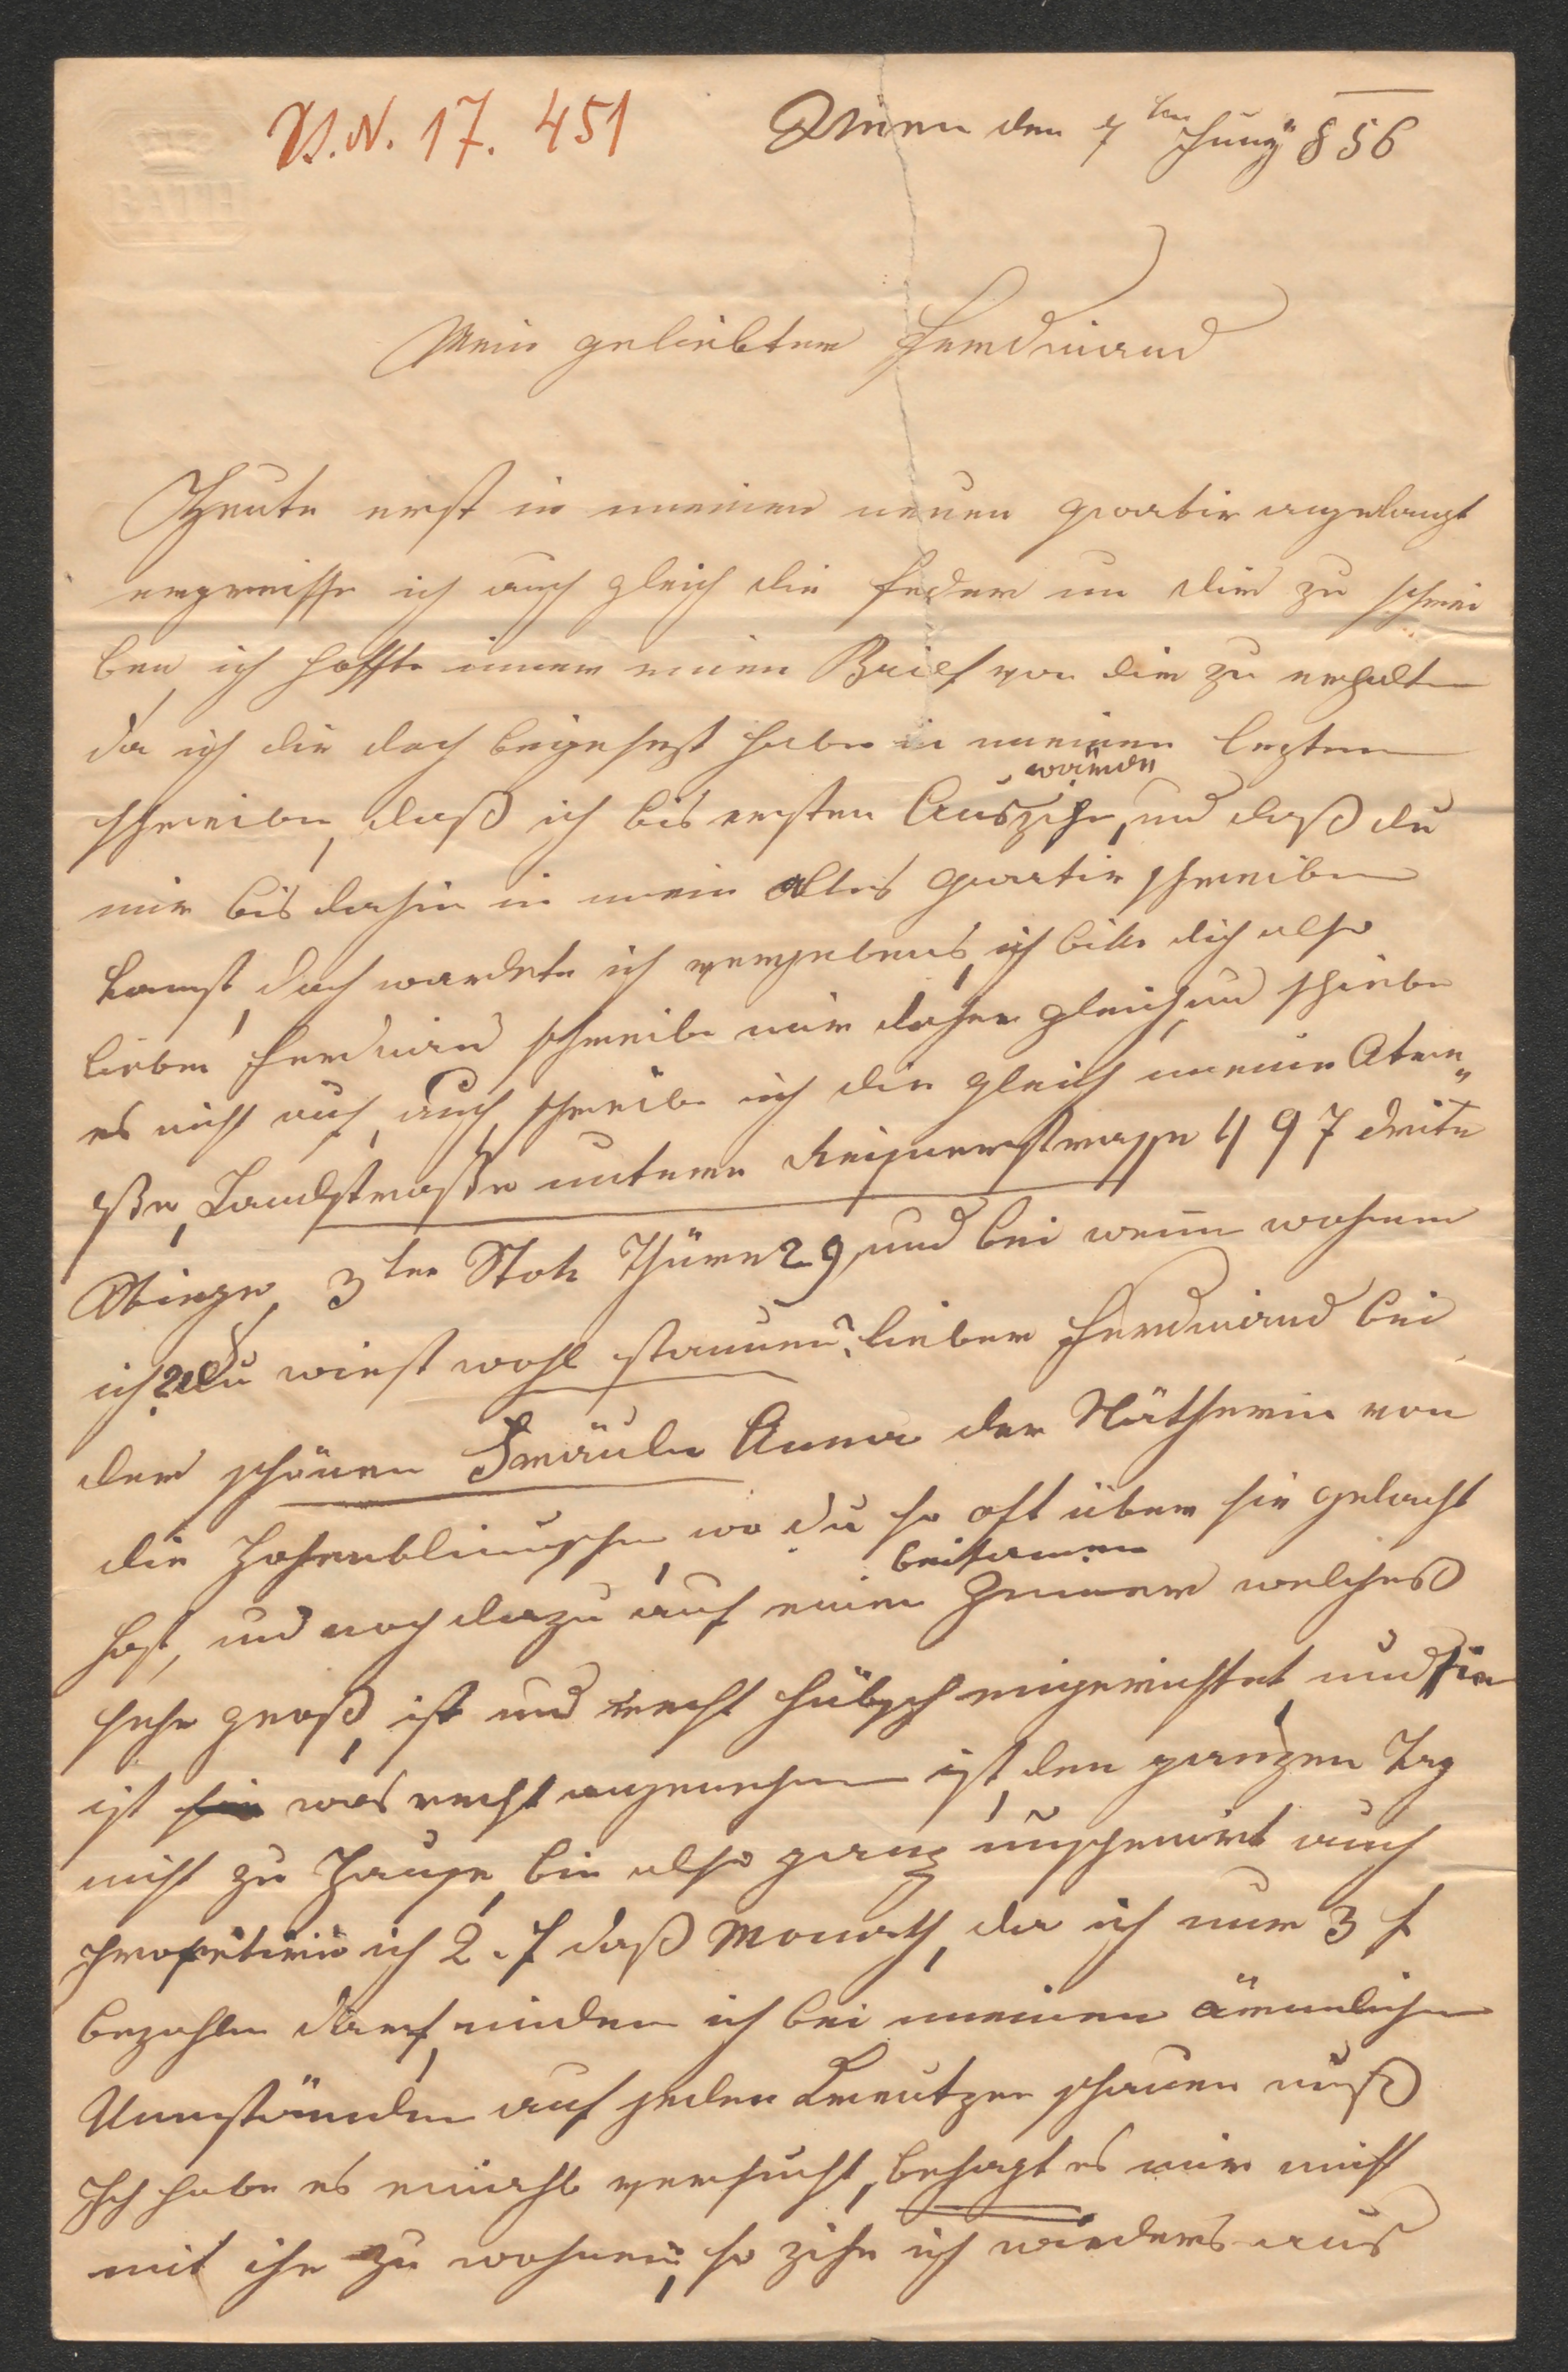 I.N. 17.451
Wien den 7ten Juny 856
Mein geliebter Ferdinand
Heute erst in meinen neuen quartir angelangt
ergreiffe ich auch gleich die feder um dir zu schrei
ben, ich hoffte immer einen Brief von dir zu erhalten
da ich dir doch beigesezt habe in meinen lezten
schreiben, daß ich bis ersten Ausziehe, und daß du
würde
mir bis dahin in mein altes quartir schreiben
kanst, doch wardete ich vergebens, ich bitte dich also
lieber Ferdinand schreibe mir daher gleich, und schiebe
es nicht auf, auch schreibe ich dir gleich meine Atre„
ße, Landstraße untere Reisnerstrasse 497 dritte
Stiege, 3ter Stok Thüre 29, und bei wem wohne
ich? du wirst wohl staunen? lieber Ferdinand bei
der schönen Fräuln Anna der Nätherin von
die Hasenblumschen, wo du so oft über sie gelacht
hast, und noch dazu auf einen Zimmer welcheß
beisamen
sehr groß, ist und recht hübsch eingerichtet, und sie
ist was recht angenehm ist, den ganzen Tag
nicht zu Hause, bin also ganz unschenirt auch
profitire ich 2 f daß Monath, da ich nur 3 f
bezahlen darf, inden ich bei meinen ärmlichen
Umständen auf jeden Kreutzer schauen muß
Ich habe es einmahl versucht, behagt es mir nicht
mit ihr zu wohnen, so zihe ich wieders aus